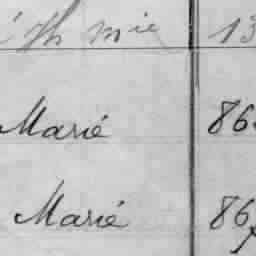 th mie 13
Marié 86
Marié 86